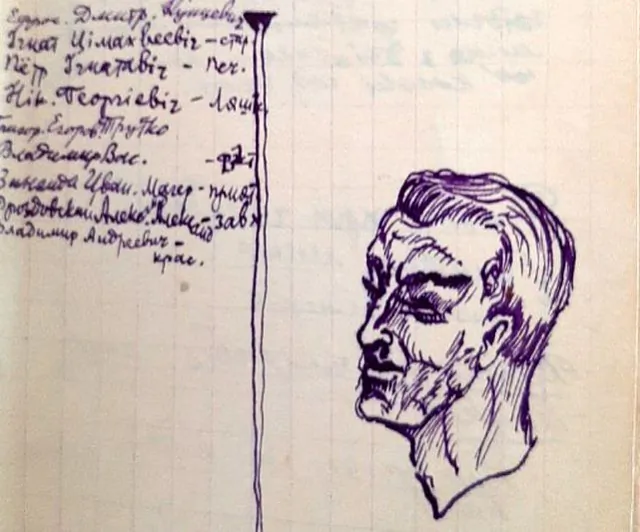 Ефрос. Дмитр. Кунцевич
Ігнат Цімахвеевіч – стар
Пётр Ігнатавіч – печ.
Нік. Георгіевіч – Ляшк
Григор. Егоров. Трутко
Владимир Вас. –
Зинаида Иван. Магер –
Дроздовский Алекс. Алекс – зав
Владимир Андреевич –
крас.